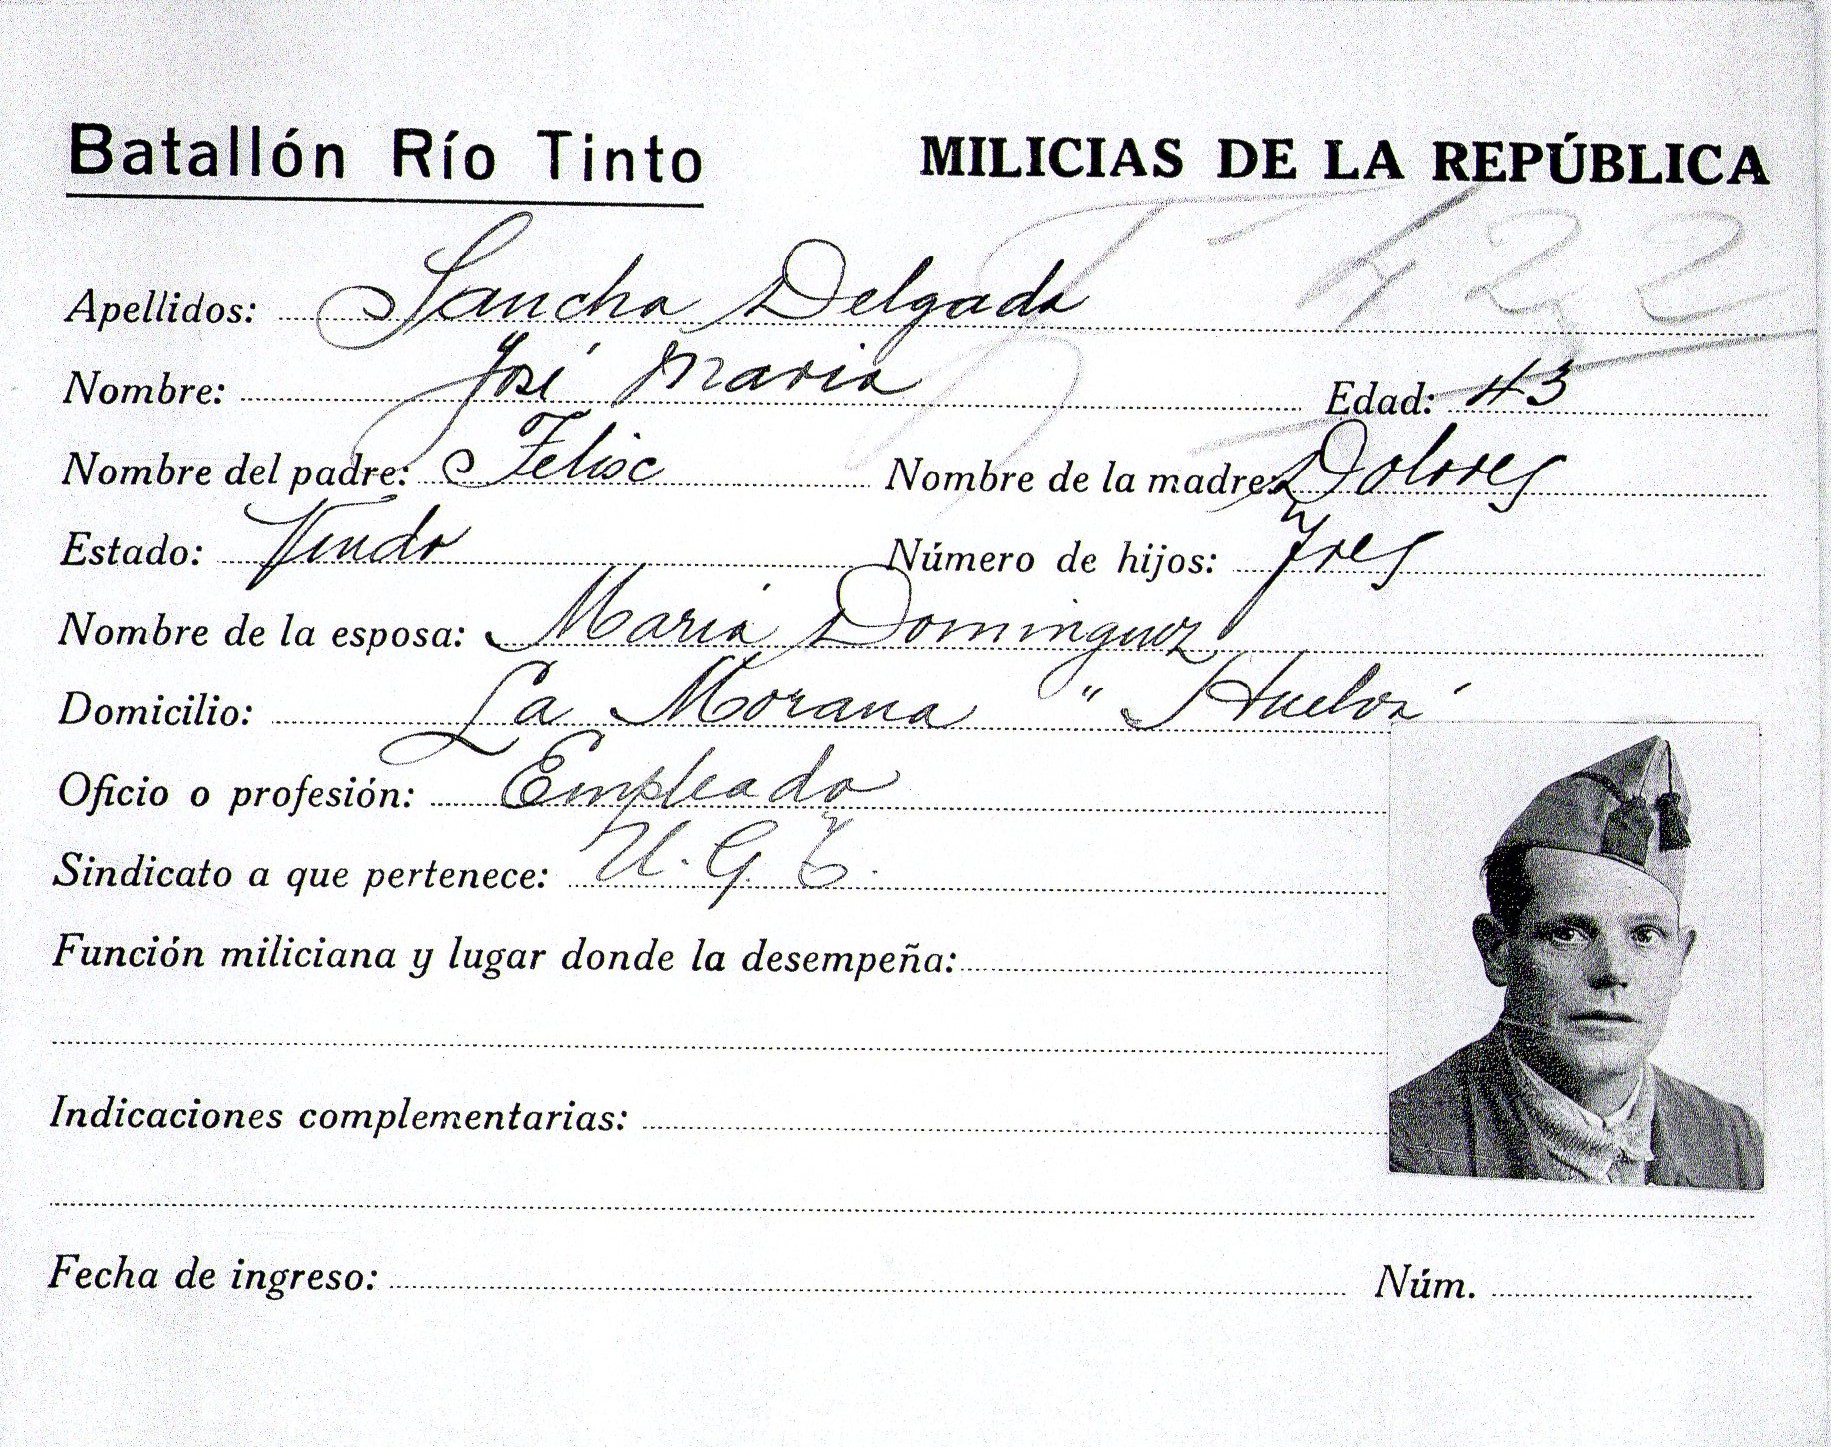 Batallón Río Tinto MILICIAS DE LA REPÚBLICA
422
Apellidos: Sancho Delgado
Nombre: José Maria Edad: 43
Nombre del padre: Felix Nombre de la madre: Dolores
Estado: Viudo Número de hijos: Tres
Nombre de la esposa: Maria Dominguez
Domicilio: La Morana " Huelva
Oficio o profesión: Empleado
Sindicato a que pertenece: U. G. T.
Función miliciana y lugar donde la desempeña:
Indicaciones complementarias:
Fecha de ingreso: Núm.